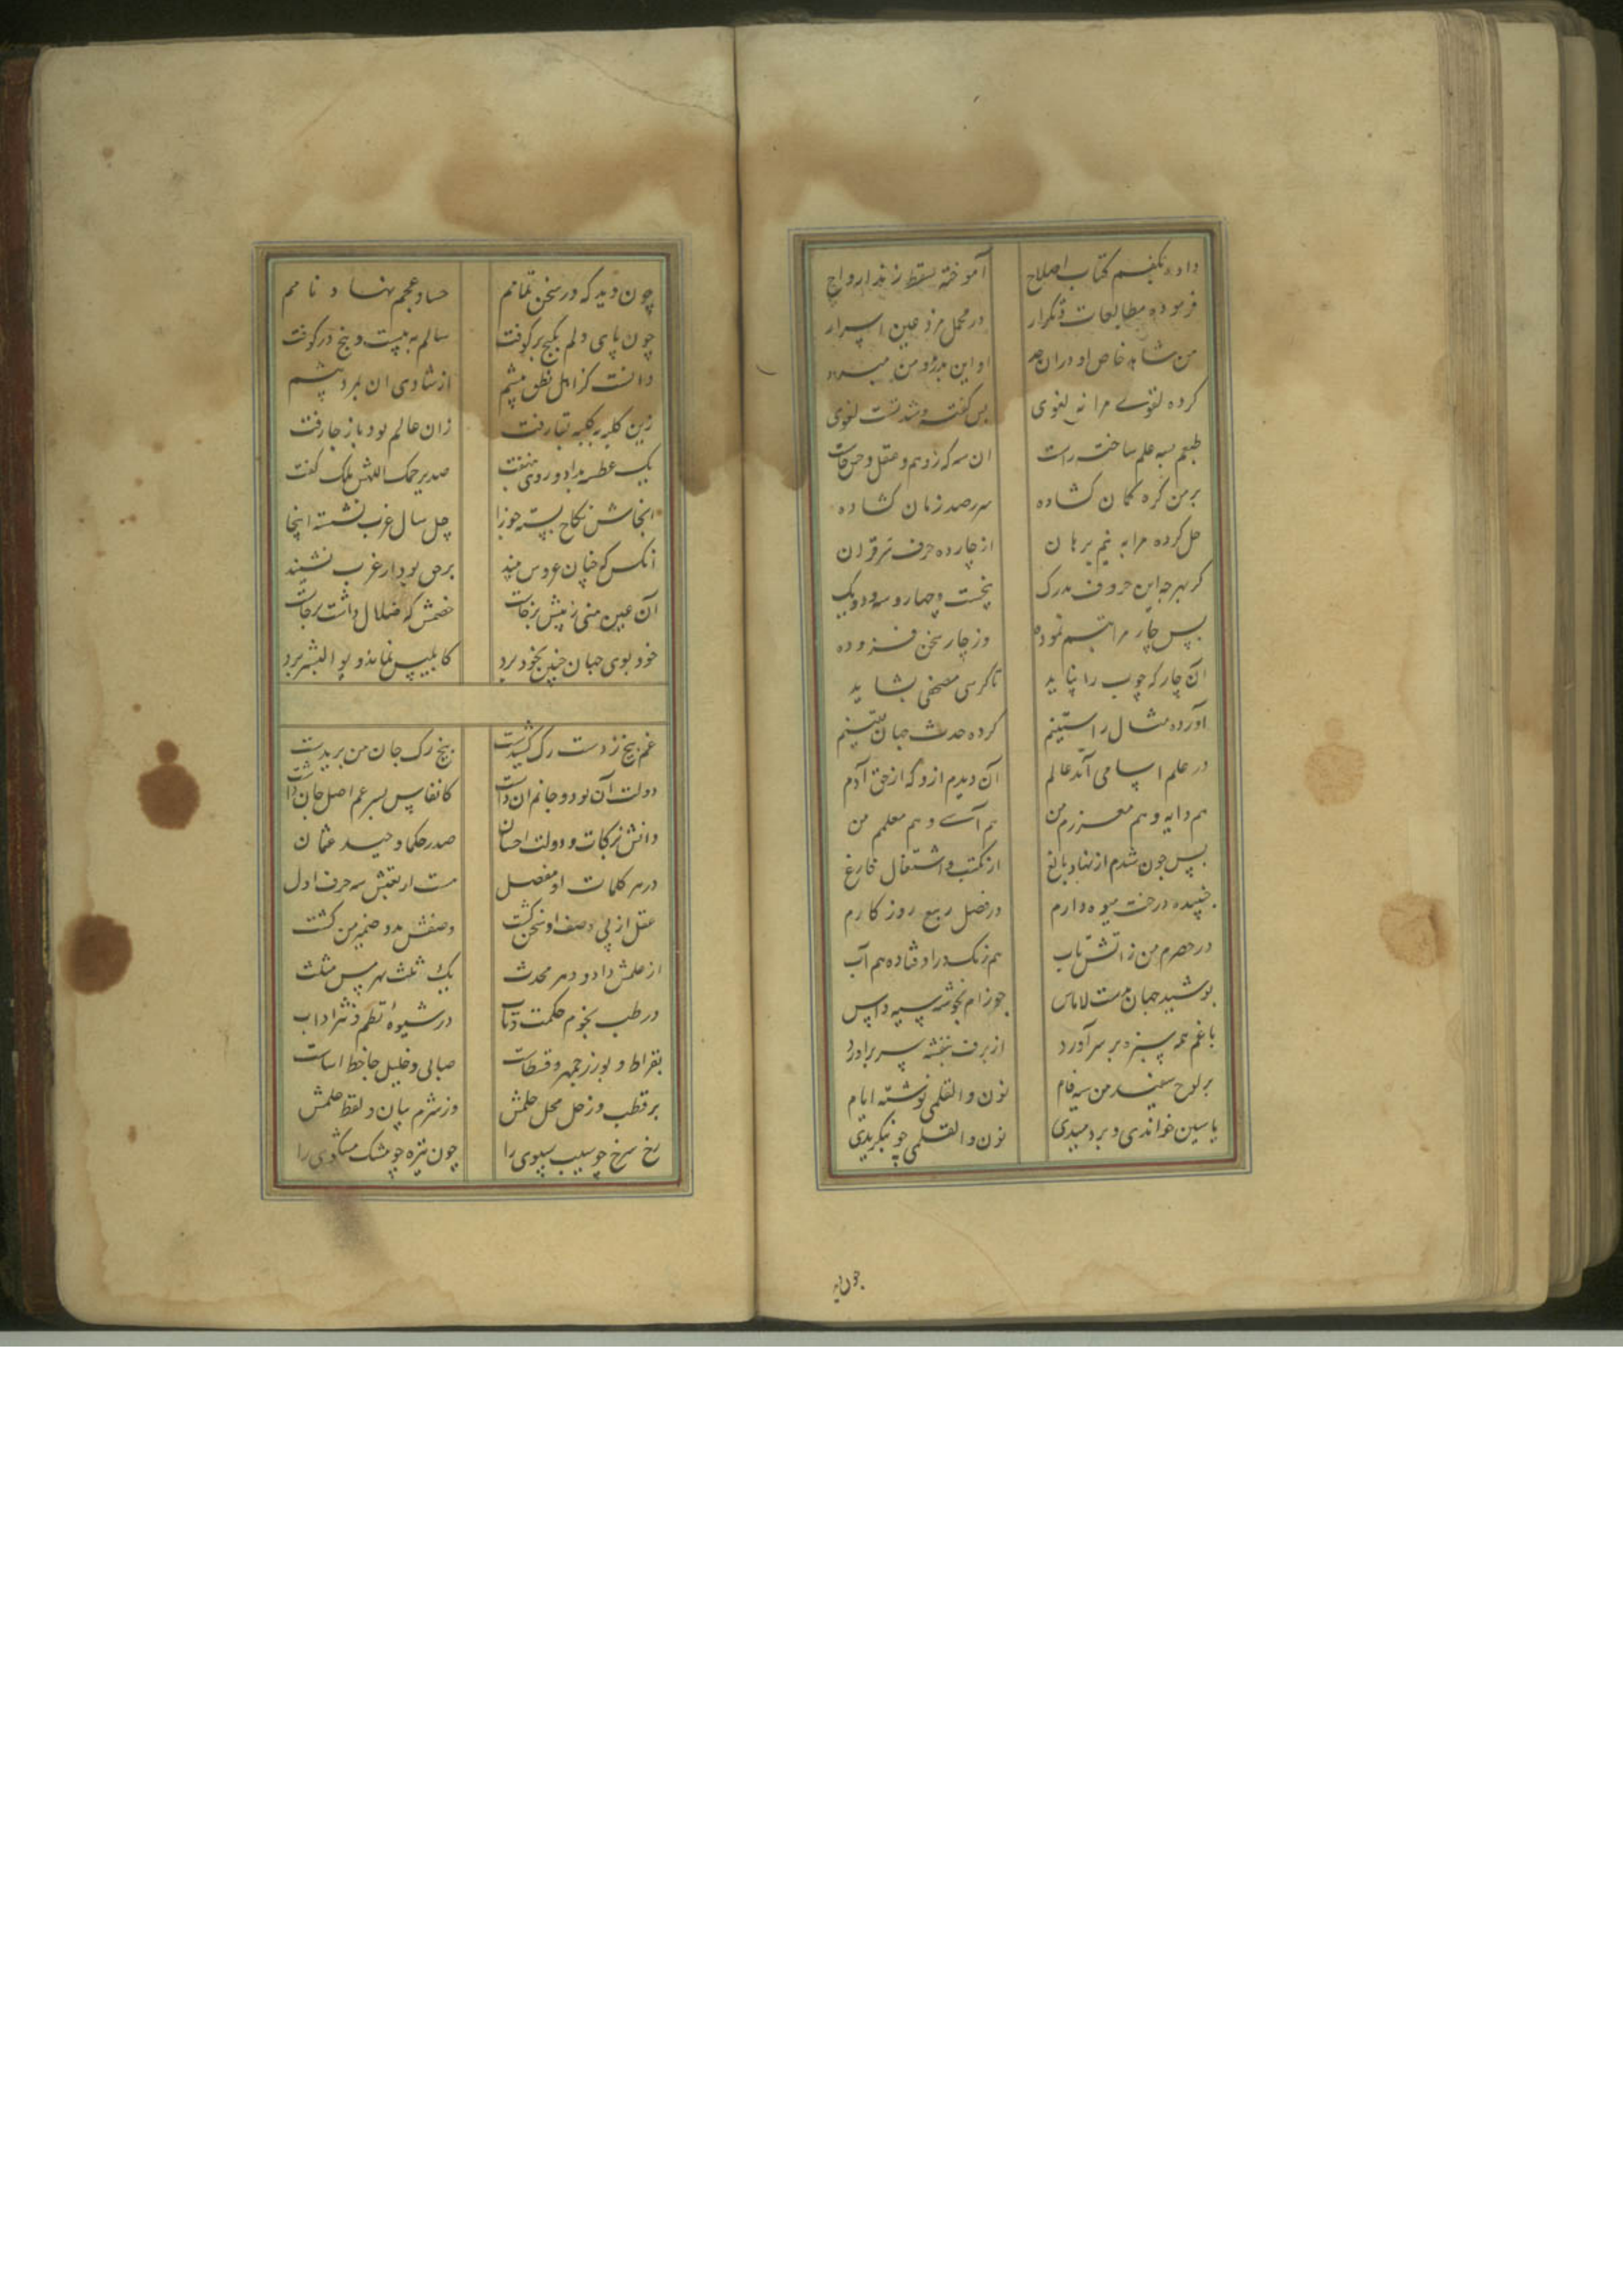 داده بکفم کتاب اصلاح آموخته سقط زند ارواح
فرموده مطالعات و تکرار در مجمل مرد عین اسرار
من شاهد خاص او در ان او این بدرو من
کرده لغوی مرا نه لغوی بس کفته
طبعم بسه علم ساخت راست ان سه که زوهم و عقل و
بر من کره کمان کشاده سر رصد زمان کشاده
حل کرده مرا به نیم برهان از چارده حرف سر قران
کز بهر چه این حروف مدرک پنجست و چهار و سه و دو و یک
پس چار مراتبم نموده وز چار سخن فزوده
آن چار که چوب را بباید تا کرسی مصحفی بشاید
آورده مثال راستینم کرده حدث جهان یقینم
در علم اسامی آمد عالم آن دیدم ازو که از حق آدم
هم دایه و هم معزرم من هم آسی و هم معلمم من
پس چون شدم از نهاد بالغ از مکتب و اشتغال فارغ
خنبیده درخت میوه دارم در فصل ربیع روزکارم
در حصرم من ز آتش تاب هم زنک در اوفتاده هم آب
پوشید جهان لاماس جوزام بخوشه سیه داس
باغم همه سبزه بر سر آورد از برف بنفشه سر براورد
بر لوح سفید من سیه فام نون والقلمی نوشته ایام
یاسین خواندی و بردمیدی نون والقلمی چو بنکریدی
چون دید
چون دید که در سخن تمامم حسان عجم نهاد نامم
چون پای دلم بکنج بر کوفت سالم به بیست و پنج در کوفت
دانست کز اهل نطق بیشم از شادی ان بمرد پیشم
زین کلبه بکلبه بقا رفت زان عالم بود باز جا رفت
یک عطسه بداد و روی بنهفت صد یرحمک اللهش ملک کفت
انجاش نکاح بسته جوزا چل سال عزب نشسته اینجا
آنکس که چنان عروس بیند برحق بود ار عزب نشیند
آن عین منی ز پیش برخاست خصمش که ضلال داشت برجاست
خود بوی جهان چنین بخود برد کابلیس نماند و بو البشر برد
غم بیخ ز دست رک کشیدست بیخ رک جان من بریدست
دولت آن بود و جانم ان داشت کانفاس پسر عم اصل جان داشت
دانش برکات و دولت احسان صدر حکما وحید عثمان
در هر کلمات او مفصل هست اربعینش سه حرف اول
عقل از پی وصف او سخن کشت وصفش مدد ضمیر من کشت
از علمش داد و دهر محدث یک ثلث بهرمس مثلث
در طب نجوم حکمت و آداب در شیوهٔ نظم و نثر اداب
بقراط و بوزرجمهر و قسطاست صابی و خلیل جاحظ اساست
بر قطب و زحل محل حلمش وز شرم بیان و لفظ علمش
رخ سرخ چو سیب سیبوی را چون تیره چو مشک را